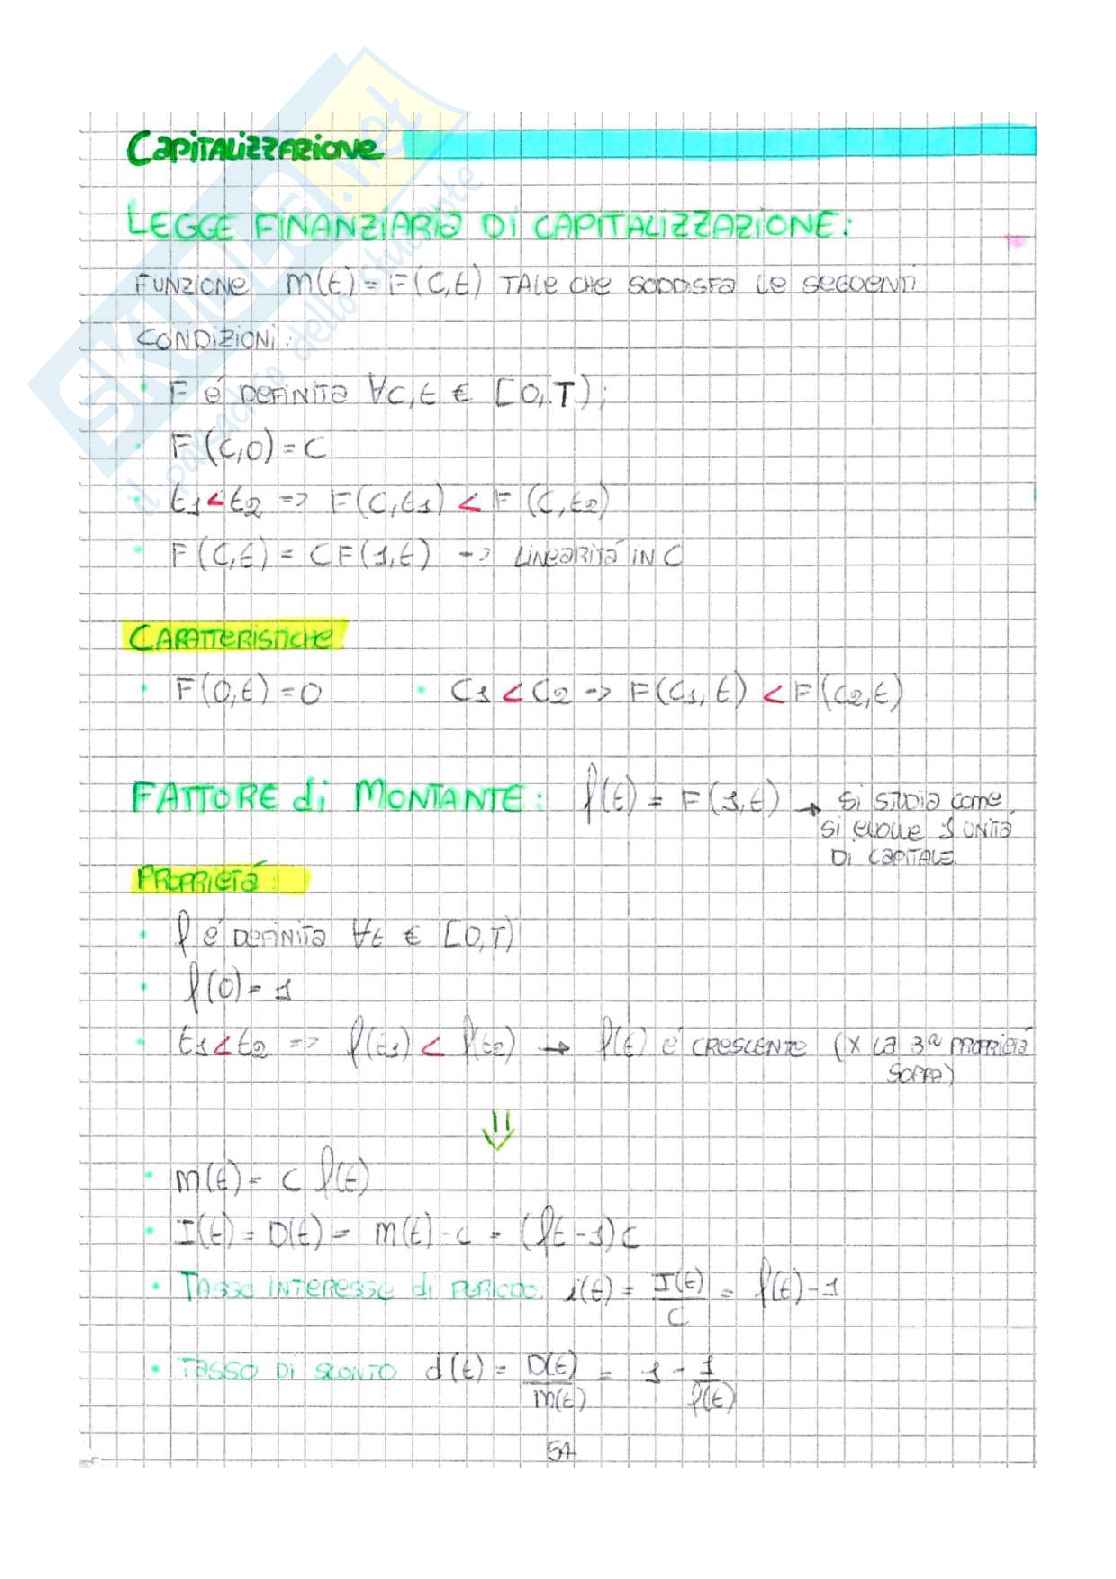 Capitalizzazione
LEGGE FINANZIARIA DI CAPITALIZZAZIONE:
FUNZIONE M(t) = F(C,t) TALE CHE SODDISFA LE SEGUENTI
CONDIZIONI:
• F é DEFINITA ∀C,t ∈ [0,T);
• F(C,0) = C
• t1 < t2 => F(C,t1) < F(C,t2)
• F(C,t) = CF(1,t) -> LINEARITÁ IN C
CARATTERISTICHE
• F(0,t) = 0 • C1 < C2 -> F(C1,t) < F(C2,t)
FATTORE di MONTANTE: f(t) = F(1,t) → si studia come
si evolve 1 unitá
di capitale
PROPRIETÁ:
• f é DEFINITA ∀t ∈ [0,T)
• f(0) = 1
• t1 < t2 => f(t1) < f(t2) → f(t) é CRESCENTE (x la 3ª PROPRIETÁ
SOPRA)
⇓
• M(t) = C f(t)
• I(t) = D(t) = M(t) - C = (ft - 1)C
• TASSO INTERESSE di PERIODO: i(t) = I(t)/C = f(t) - 1
• TASSO DI SCONTO d(t) = D(t)/M(t) = 1 - 1/f(t)
SKUOLA.net
il paradiso dello studente